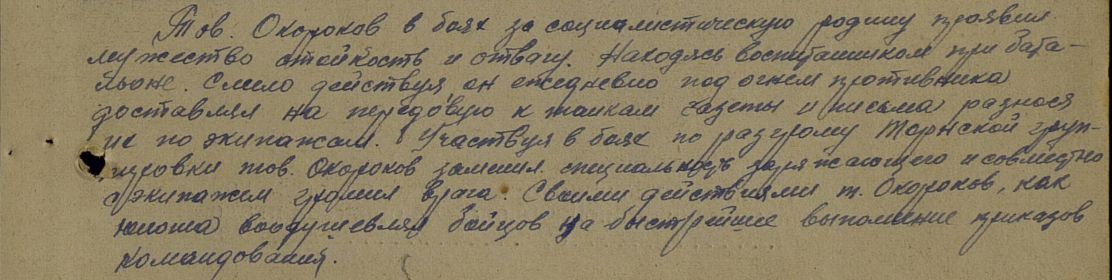 Тов. Окороков в боях за социалистическую родину проявил
мужество стойкость и отвагу. Находясь воспитанником при бата-
льоне. Смело действуя, он ежедневно под огнем противника
доставлял на передовую к танкам газеты и письма разнося
их по экипажам. Участвуя в боях по разгрому Торунской груп-
пировки тов. Окороков заменил специальность заряжающего и совместно
с экипажем громил врага. Своими действиями т. Окороков, как
юноша воодушевлял бойцов на быстрейшие выполнение приказов
командования.